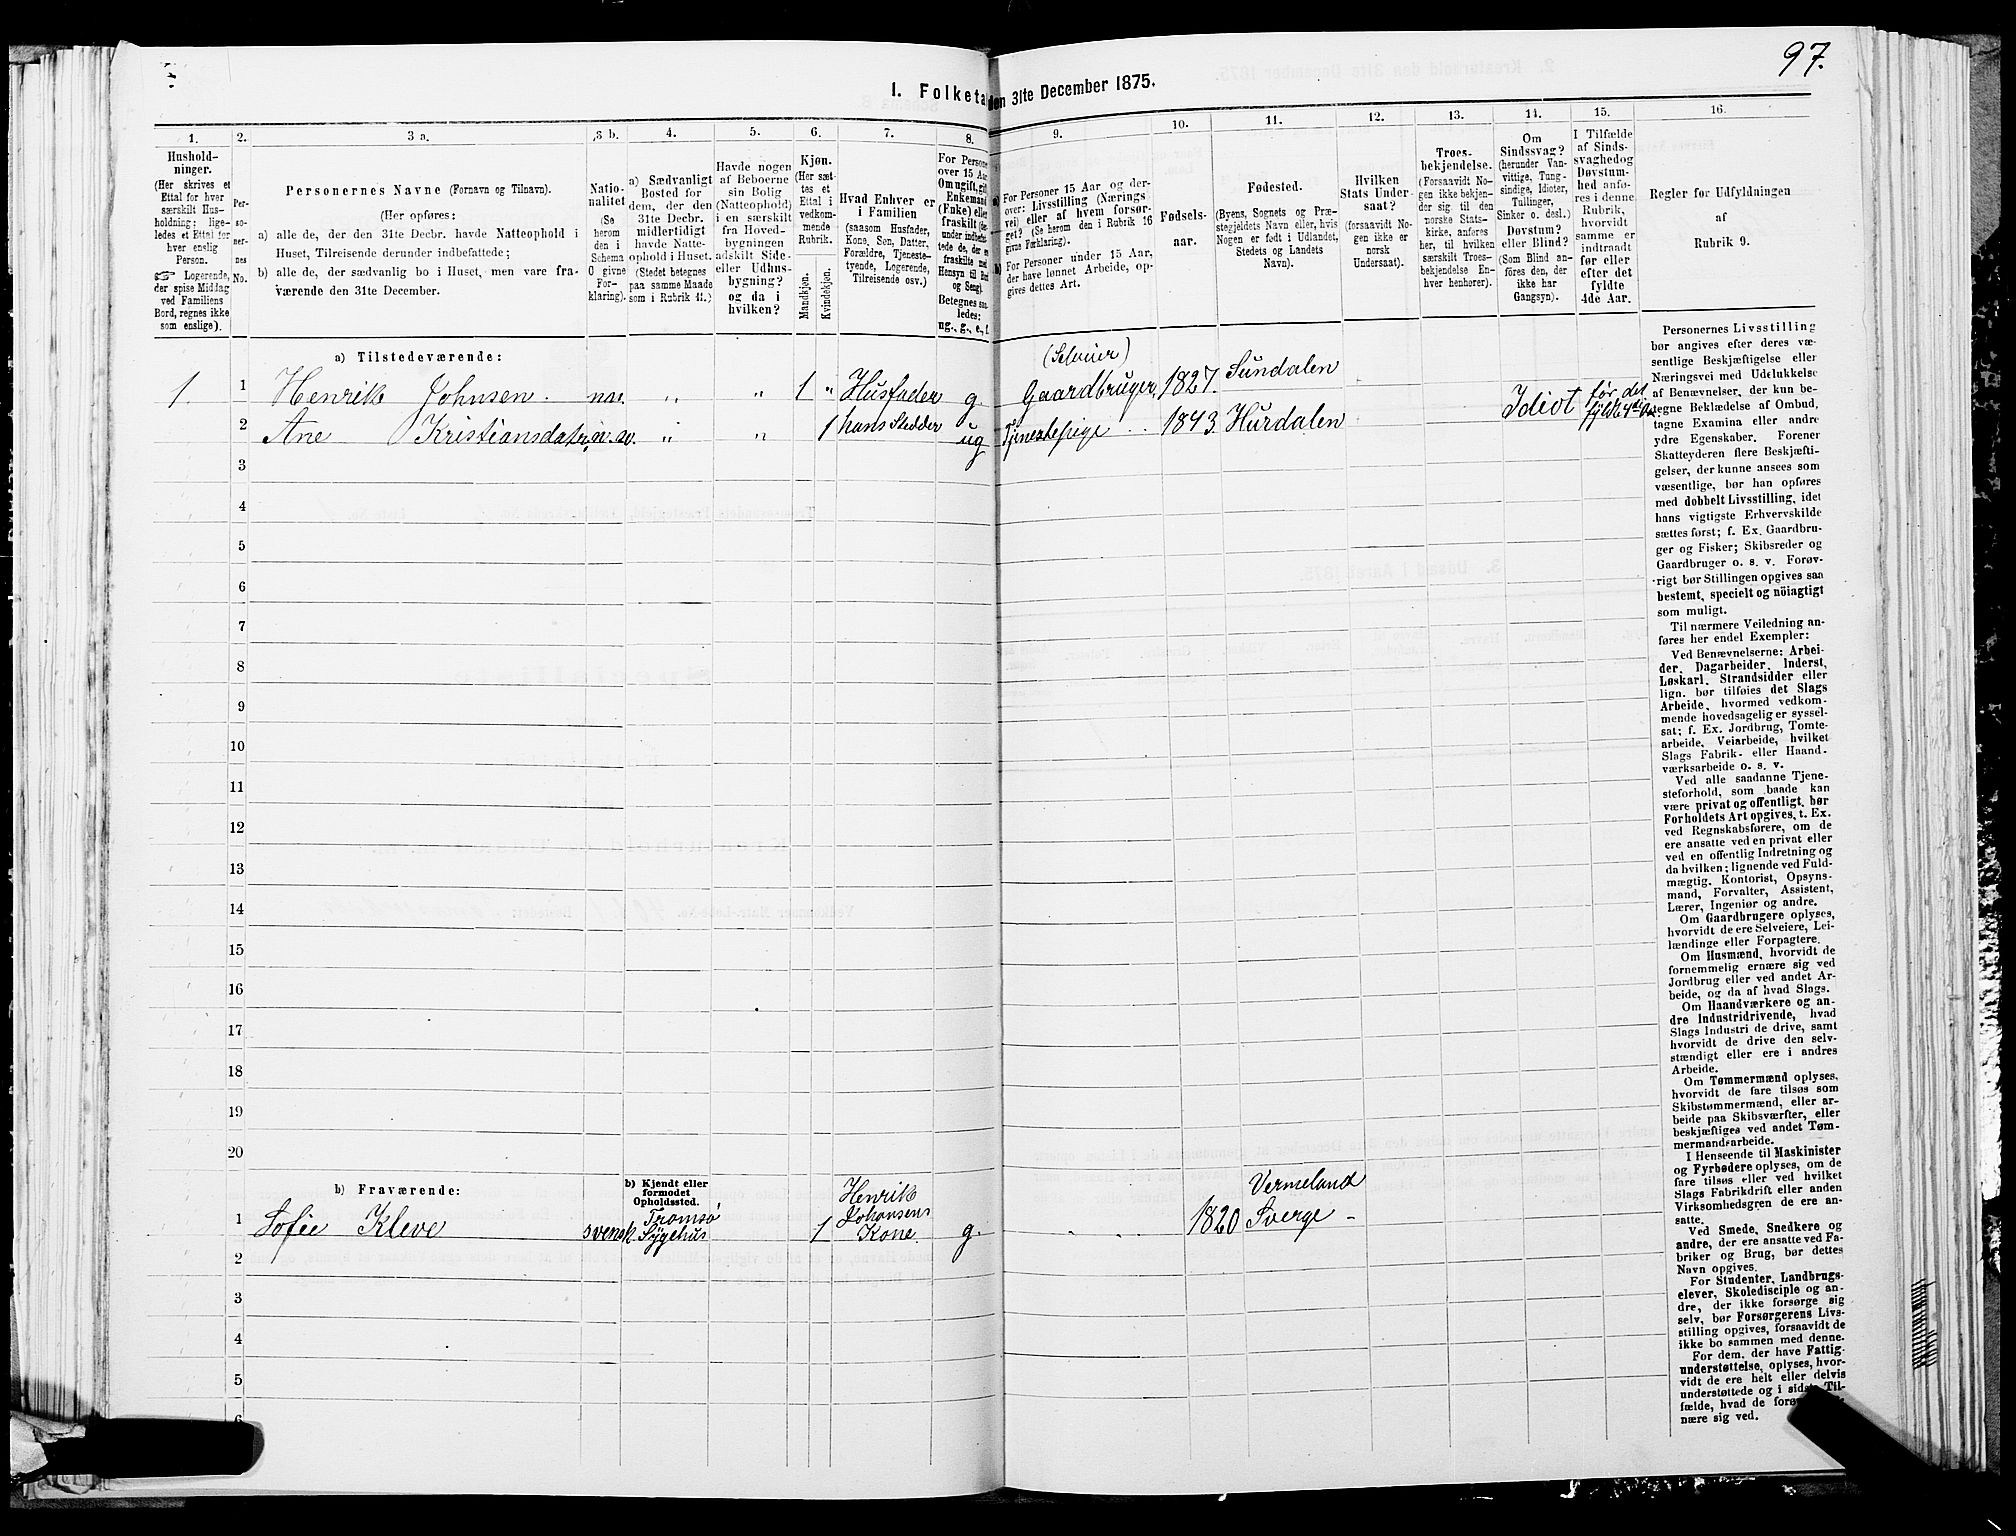 97.
I. Folketa
den 31te December 1875.
1.
Hushold-
ninger.
(Her skrives et
Ettal for hver
særskilt Hus-
holdning; lige-
ledes et Ettal for
hver enslig
Person.
☞ Logerende,
der spise Middag
ved Familiens
Bord, regnes ikke
som enslige).
2.
Per-
so-
ner-
nes
No.
3 a.
Personernes Navne (Fornavn og Tilnavn).
(Her opføres:
a) alle de, der den 31te Decbr. havde Natteophold i
Huset, Tilreisende derunder indbefattede;
b) alle de, der sædvanlig bo i Huset, men vare fra-
værende den 31te December.
3 b.
Natio-
nalitet
(Se
herom
den i
Schema
O givne
For-
klaring).
4.
a) Sædvanligt
Bosted for
dem, der den
31te Decbr.
midlertidigt
havde Natte-
ophold i Huset.
(Stedet betegnes
paa samme Maade
som i Rubrik 11.)
5.
Havde nogen
af Beboerne
sin Bolig
(Natteophold)
i en særskilt
fra Hoved-
bygningen
adskilt Side-
eller Udhus-
bygning?
og da i
hvilken?
6.
Kjøn.
(Her sæt-
tes et
Ettal i
vedkom-
mende
Rubrik.
Mandkjøn.
Kvindekjøn.
7.
Hvad Enhver er
i Familien
(saasom Husfader,
Kone, Søn, Datter,
Forældre, Tjeneste-
tyende, Logerende,
Tilreisende osv.)
8.
For Persone
over 15 Aar
Om ugift, gift,
Enkemand
(Enke) eller
fraskilt
Betegnes saa-
ledes:
ug., g., e., f.
9.
a) For Personer 15 Aar og der-
over: Livsstilling (Nærings-
vei) eller af hvem forsør-
get? (Se herom i Rubrik 16
givne Færklaring).
b) For Personer under 15 Aar,
der have lønnet Arbeide, op-
gives dettes Art.
10.
Fødsels-
aar.
11.
Fødested.
(Byens, Sognets og Præ-
stegjeldets Navn eller, hvis
Nogen er født i Udlandet,
Stedets og Landets
Navn).
12.
Hvilken
Stats Under-
saat?
(forsaavidt No-
gen ikke er
norsk
Undersaat).
13.
Troes-
bekjendelse.
(Forsaavidt No-
gen ikke bekjen-
der sig til den
norske Stats-
kirke, anføres
her, til hvilken
særskilt Troes-
bekjendelse En-
hver henhører).
14.
Om
Sindssvag?
(herunder Van-
vittige, Tung-
sindige, Idioter,
Tullinger,
Sinker o. desl.)
Døvstum?
eller Blind?
(Som Blind an-
føres den, der
ikke har
Gangsyn).
15.
I Tilfælde
af Sinds-
svaghed og
Døvstum-
hed anfø-
res i denne
Rubrik,
hvorvidt
samme er
indtraadt
før eller
efter det
fyldte
4de Aar.
16.
Regler for Udfyldningen
af
Rubrik 9.
a) Tilstedeværende:
(Selveier)
1. 1 Henrik Johnsen. nor. „ „ 1 „ Husfader g. Gaardbruger, 1827. Sundalen
2 Ane Kristiansdatter „ „ 1 hans Stedder ug Tjenestepige 1843. Hurdalen Idiot før det fyldte 4de Aar
3
4
5
6
7
8
9
10
11
12
13
14
15
16
17
18
19
20
b) Fraværende:
b) Kjendt eller
formodet
Opholdssted.
1 Sofie Kleve svensk. Tromsø Sygehus 1 Henrik Johansens Kone g. 1820 Vermeland Sverge –
2
3
4
5
6
Personernes Livsstilling
bør angives efter deres væ-
sentlige Beskjæftigelse eller
Næringsvei med Udelukkelse
af Benævnelser, der kun be-
tegne Beklædelse af Ombud,
tagne Examina eller andre
ydre Egenskaber. Forener
Skatteyderen flere Beskjæfti-
gelser, der kunne ansees som
væsentlige, bør han opføres
med dobbelt Livsstilling, idet
hans vigtigste Erhvervskilde
sættes først; f. Ex. Gaardbru-
ger og Fisker; Skibsreder og
Gaardbruger o. s. v. Forøv-
rigt bør Stillingen opgives saa
bestemt, specielt og nöiagtigt
som muligt.
Til nærmere Veiledning an-
føres her endel Exempler:
Ved Benævnelserne: Arbei-
der, Dagarbeider, Inderst,
Løskarl, Strandsidder eller
lign. bør tilføies det Slags
Arbeide, hvormed vedkom-
mende hovedsagelig er syssel-
sat; f. Ex. Jordbrug, Tomte-
arbeide, Veiarbeide, hvilket
Slags Fabrik- eller Haand-
værksarbeide o. s. v.
Ved alle saadanne Tjene-
steforhold, som baade kan
være privat og offentligt, bør
Forholdets Art opgives, t. Ex.
ved Regnskabsførere, om de
ere ansatte ved en privat eller
ved en offentlig Indretning og
da hvilken; lignende ved Fuld-
mægtig, Kontorist, Opsyns-
mand, Forvalter, Assistent,
Lærer, Ingeniør og andre.
Om Gaardbrugere oplyses,
hvorvidt de ere Selveiere, Lei-
lændinge eller Forpagtere.
Om Husmænd, hvorvidt de
fornemmelig ernære sig ved
Jordbrug eller ved andet Ar-
beide, og da af hvad Slags.
Om Haandværkere og an-
dre Industridrivende, hvad
Slags Industri de drive, samt
hvorvidt de drive den selv-
stændigt eller ere i andres
Arbeide.
Om Tømmermænd oplyses,
hvorvidt de fare tilsøs som
Skibstømmermænd, eller ar-
beide paa Skibsværfter, eller
beskjæftiges ved andet Tøm-
mermandsarbeide.
I Henseende til Maskinister
og Fyrbødere oplyses, om de
fare tilsøs eller ved hvilket
Slags Fabrikdrift eller anden
Virksomhedsgren de ere an-
satte.
Ved Smede, Snedkere og
andre, der ere ansatte ved Fa-
briker og Brug, bør dettes
Navn opgives.
For Studenter, Landbrugs-
elever, Skoledisciple og an-
dre, der ikke forsørge sig
selv, bør Forsørgerens Livs-
stilling opgives, forsaavidt de
ikke bo sammen med denne.
For dem, der have Fattig-
understøttelse, oplyses, hvor-
vidt de ere helt eller delvis
understøttede og i sidst Til-
fælde, hvad de
nære sig ved.